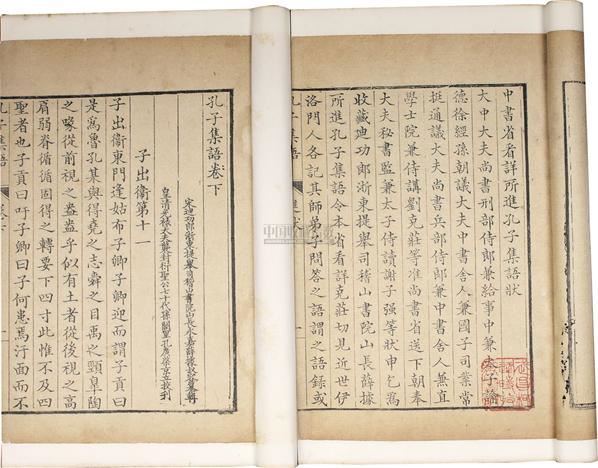 中書省看詳所進孔子集語狀
大中大夫尚書刑部侍郎兼給事中兼太子諭
德徐經孫朝議大夫中書舍人兼國子司業常
挺通議大夫尚書兵部侍郎兼中書舍人兼直
學士院兼侍講劉克莊等准尚書省送下朝奉
大夫秘書監兼太子侍讀謝子强等狀申乞爲
收藏迪功郎浙東提舉司稽山書院山長薛據
所進孔子集語令本省看詳克莊切見近世伊
洛門人各記其師弟子問答之語謂之語錄或
孔子集語
孔子集語卷下
宋迪功郎浙東提舉司稽山書院山長永嘉薛據
皇清光祿大夫襲封衍聖公七十代孫闕里孔廣棨京立校刊
子出衛第十一
子出衛東門逢姑布子卿子卿迎而謂子貢曰
是爲魯孔某與得堯之志舜之目禹之頸皐陶
之喙從前視之盎盎乎似有土者從後視之高
肩弱脊循循固得之轉要下四寸此惟不及四
聖者也子貢曰吁子卿曰子何患焉汙面而不
孔子集語